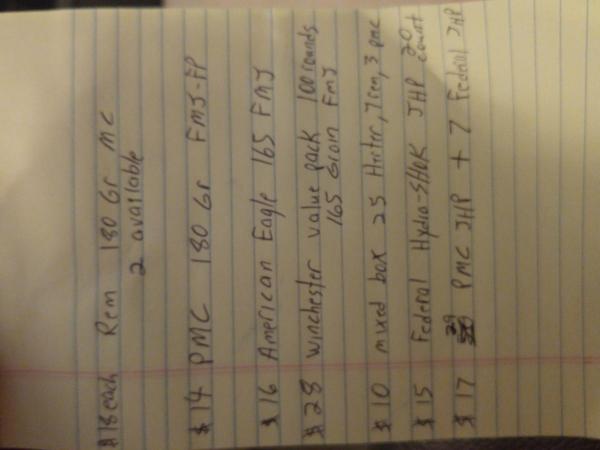 $18 each Rem 180 Gr MC
2 available
$14 PMC 180 Gr FMJ-FP
$16 American Eagle 165 FMJ
$28 Winchester value pack 100 rounds
165 Grain FMJ
$10 mixed box 25 Hriter, 7 rem, 3 pmc
$15 Federal Hydra-SHOK JHP 20 count
$17 29 PMC JHP + 7 Federal JHP